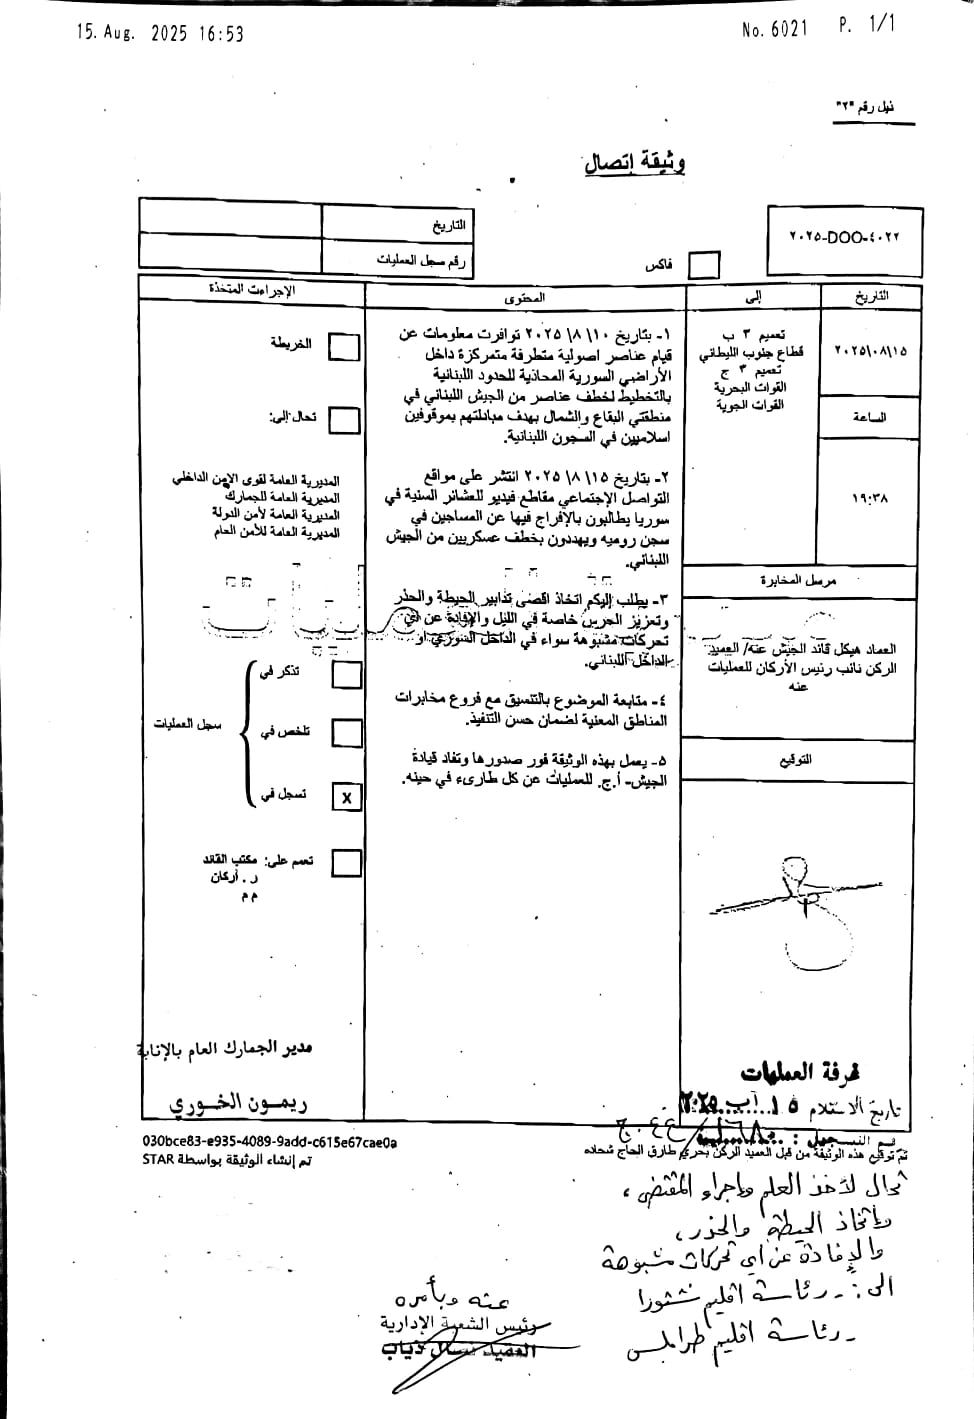 15. Aug. 2025 16:53
No. 6021 P. 1/1
ذيل رقم "٢"
وثيقة إتصال
٢٠٢٥-DOO-٤٠٢٢
التاريخ
رقم سجل العمليات
فاكس
التاريخ
٢٠٢٥\٠٨\١٥
الساعة
١٩:٣٨
إلى
تعميم ٣ ب
قطاع جنوب الليطاني
تعميم ٣ ج
القوات البحرية
القوات الجوية
مرسل المخابرة
العماد هيكل قائد الجيش عنه/ العميد
الركن نائب رئيس الأركان للعمليات
عنه
التوقيع
المحتوى
١- بتاريخ ١٠ \٨ \٢٠٢٥ توافرت معلومات عن
قيام عناصر اصولية متطرفة متمركزة داخل
الأراضي السورية المحاذية للحدود اللبنانية
بالتخطيط لخطف عناصر من الجيش اللبناني في
منطقتي البقاع والشمال بهدف مبادلتهم بموقوفين
اسلاميين في السجون اللبنانية.
٢- بتاريخ ١٥ \٨ \٢٠٢٥ انتشر على مواقع
التواصل الإجتماعي مقاطع فيديو للعشائر السنية في
سوريا يطالبون بالإفراج فيها عن المساجين في
سجن روميه ويهددون بخطف عسكريين من الجيش
اللبناني.
٣- يطلب إليكم اتخاذ اقصى تدابير الحيطة والحذر
وتعزيز الحرس خاصة في الليل والإفادة عن أي
تحركات مشبوهة سواء في الداخل السوري او
الداخل اللبناني.
٤- متابعة الموضوع بالتنسيق مع فروع مخابرات
المناطق المعنية لضمان حسن التنفيذ.
٥- يعمل بهذه الوثيقة فور صدورها وتفاد قيادة
الجيش- أ.ج. للعمليات عن كل طارىء في حينه.
الإجراءت المتخذة
الخريطة
تحال إلى:
المديرية العامة لقوى الامن الداخلي
المديرية العامة للجمارك
المديرية العامة لأمن الدولة
المديرية العامة للأمن العام
تذكر في
تلخص في
سجل العمليات
تسجل في
X
تعمم على: مكتب القائد
ر. أركان
م م
مدير الجمارك العام بالإنابة
ريمون الخوري
غرفة العمليات
تاريخ الاستلام ١٥ آب ٢٠٢٥
رقم التسجيل :
تم توقيع هذه الوثيقة من قبل العميد الركن بحري طارق الحاج شحاده
030bce83-e935-4089-9add-c615e67cae0a
تم إنشاء الوثيقة بواسطة STAR
تحال لأخذ العلم واجراء المقتضى،
واتخاذ الحيطة والحذر،
والإفادة عن أي تحركات مشبوهة
الى :- رئاسة اقليم شتورا
- رئاسة اقليم طرابلس
عنه وبأمره
رئيس الشعبة الإدارية
العقيد ذياب